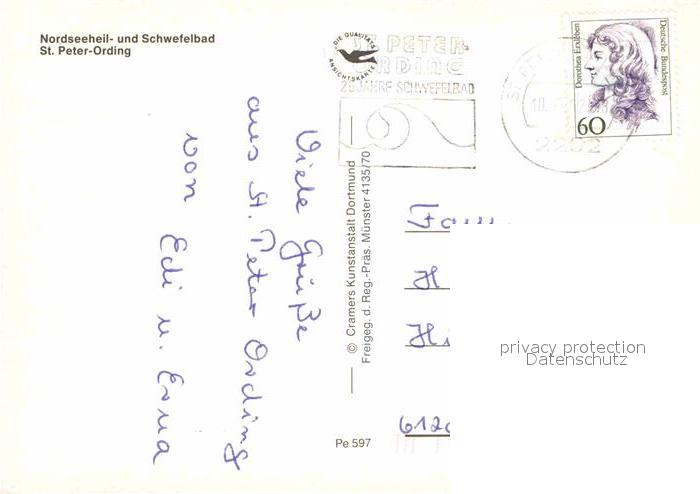 Nordseeheil- und Schwefelbad
St. Peter-Ording
DIE QUALITÄTS
ANSICHTSKARTE
ST. PETER
ORDING
25 JAHRE SCHWEFELBAD
Dorothea Erxleben
Deutsche Bundespost
60
2252
Viele Grüße
aus St. Peter Ording
von Edi u. Erna
© Cramers Kunstanstalt Dortmund
Freigeg. d. Reg.-Präs. Münster 4135/70
Fam
H
Hi
612
Pe 597
privacy protection
Datenschutz